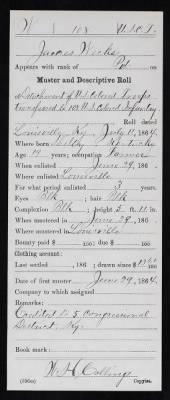 W | 108 | U.S.C.T.
James Weeks
Appears with rank of Pvt on
Muster and Descriptive Roll
of Detachment of U.S. Colored Troops
transferred to 108 U.S. Colored Infantry.
Roll dated
Louisville Ky. July 11, 1864.
Where born Shelby Kentucky
Age 19 years; occupation Farmer
When enlisted June 29, 186
Where enlisted Louisville
For what period enlisted 3 years.
Eyes Blk; hair Blk
Complexion Blk; height 5 ft. 11 in.
When mustered in June 29, 186
Where mustered in Louisville
Bounty paid $ 100; due $ 100
Clothing account:
Last settled , 186 ; drawn since $
Date of first muster June 29, 1864.
Company to which assigned
Remarks:
Credited to 5 Congressional
District, Ky.
Book mark:
W. H. Collins
(356a) Copyist.